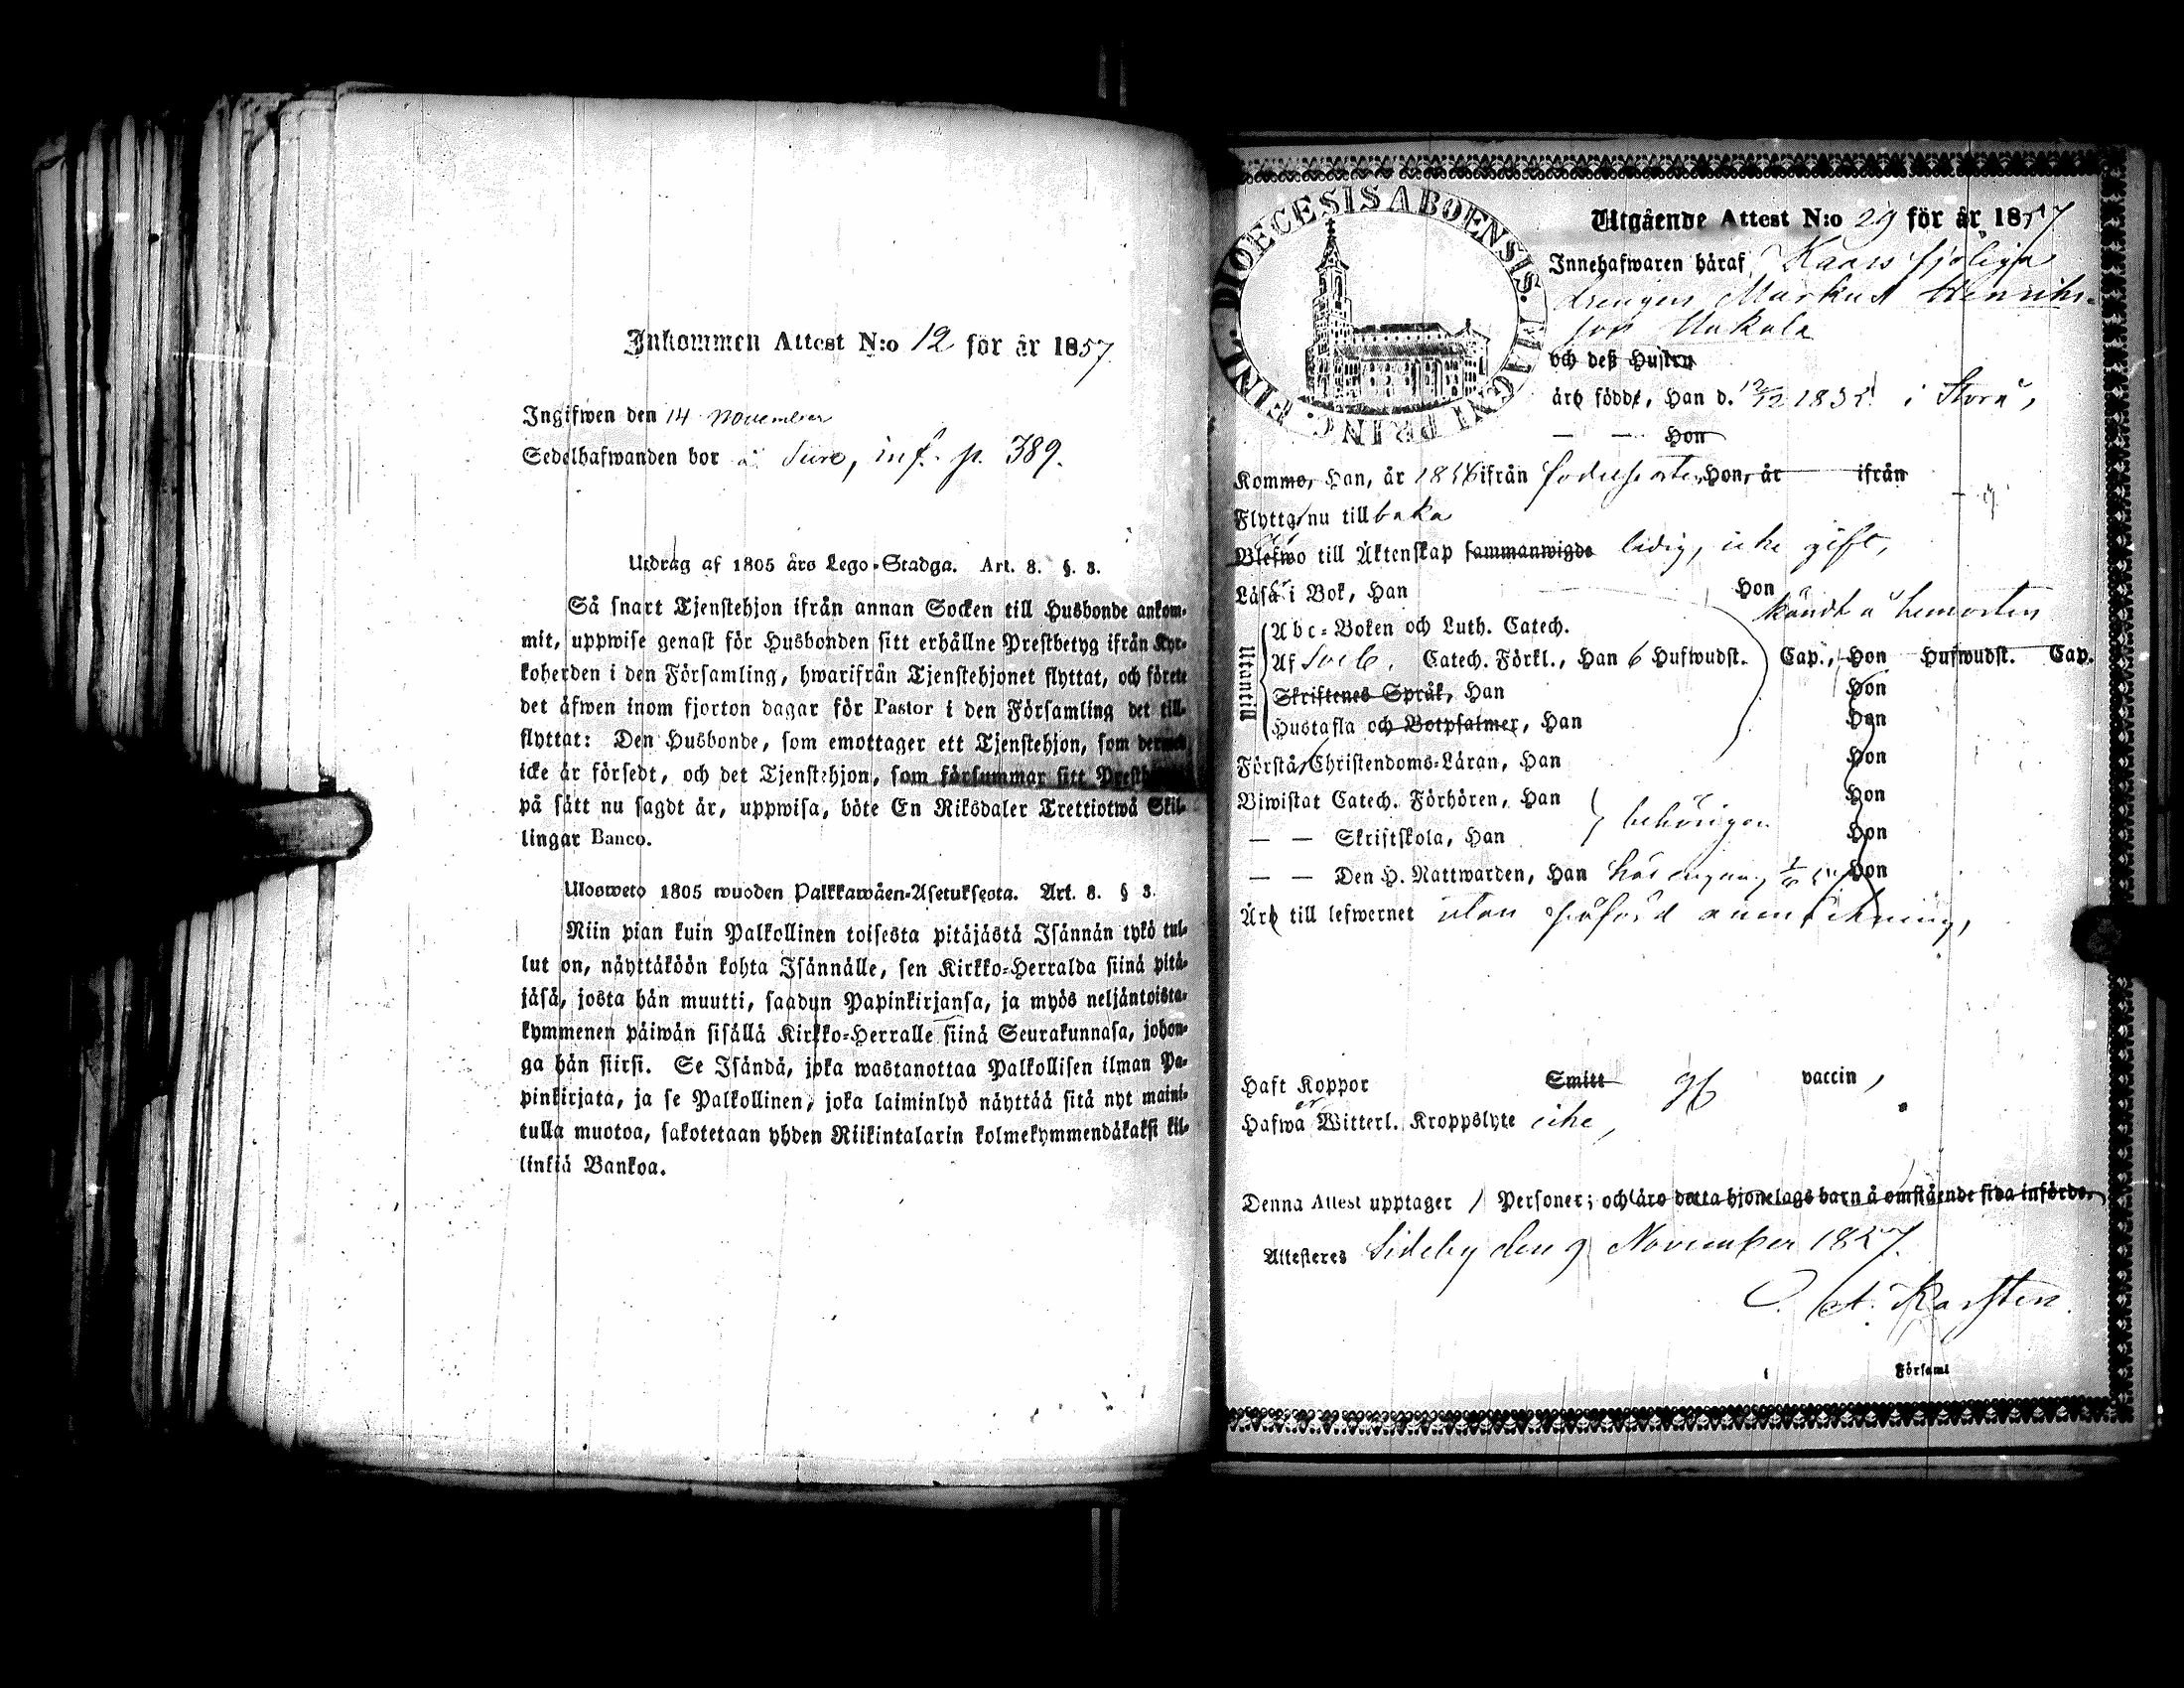 Inkommen Attest N:o 12 för år 1857
Ingifwen den 14 November
Sedelhafwanden bor å Siiro, inf. p. 389.
Utdrag af 1805 års Lego-Stadga. Art. 8. §. 3.
Så snart Tjenstehjon ifrån annan Socken till Husbonde ankom-
mit, uppwise genast för Husbonden sitt erhållne Prestbetyg ifrån Kyr-
koherden i den Församling, hwarifrån Tjenstehjonet flyttat, och förete
det äfwen inom fjorton dagar för Pastor i den Församling det till-
flyttat: Den Husbonde, som emottager ett Tjenstehjon, som dermed
icke är försedt, och det Tjenstehjon, som försummar sitt
på sätt nu sagdt är, uppwisa, böte En Riksdaler Trettiotwå Skil-
lingar Banco.
Ulosweto 1805 wuoden Palkkawäen-Asetuksesta. Art. 8. § 3.
Niin pian kuin Palkollinen toisesta pitäjästä Isännän tykö tul-
lut on, näyttäköön kohta Isännälle, sen Kirkko-Herralda siinä pitä-
jäsä, josta hän muutti, saadun Papinkirjansa, ja myös neljäntoista-
kymmenen päiwän sisällä Kirkko-Herralle siinä Seurakunnasa, johon-
ga hän siirsi. Se Isändä, joka wastanottaa Palkollisen ilman Pa-
pinkirjata, ja se Palkollinen, joka laiminlyö näyttää sitä nyt maini-
tulla muotoa, sakotetaan yhden Riikintalarin kolmekymmendäkaksi kil-
linkiä Bankoa.
DIOECESIS ABOENSIS. MAGNI PRINC. FINL.
Utgående Attest N:o 29 för år 1857
Innehafwaren häraf
drengen Markus Henriks-
son
och deß Hustru
äro födde, Han d. 12/12 1835 i Storå,
— — Hon
Komma, Han, år 1856 ifrån födelseorten, Hon, år ifrån
Flytta nu tillbaka
Blefwo till Äktenskap sammanwigde ledig, icke gift,
Läsa i Bok, Han Hon
kändt å hemorten
Utantill
Abc-Boken och Luth. Catech.
Af Catech. Förkl., Han 6 Hufwudst. Cap., Hon Hufwudst. Cap.
Skriftenes Språk, Han Hon
Hustafla och Botpsalmer, Han Hon
Förstå Christendoms-Läran, Han Hon
Biwistat Catech. Förhören, Han Hon
behörigen
— — Skriftskola, Han Hon
— — Den H. Nattwarden, Han här engång Hon
Äro till lefwernet utan påförd anmärkning,
Haft Koppor Smitt vaccin,
Hafwa er Witterl. Kroppslyte icke,
Denna Attest upptager 1 Personer; och äro detta hjonelags barn å omstående sida införde.
Attesteres Sideby den 9 November 1857.
A. Karsten
Församl